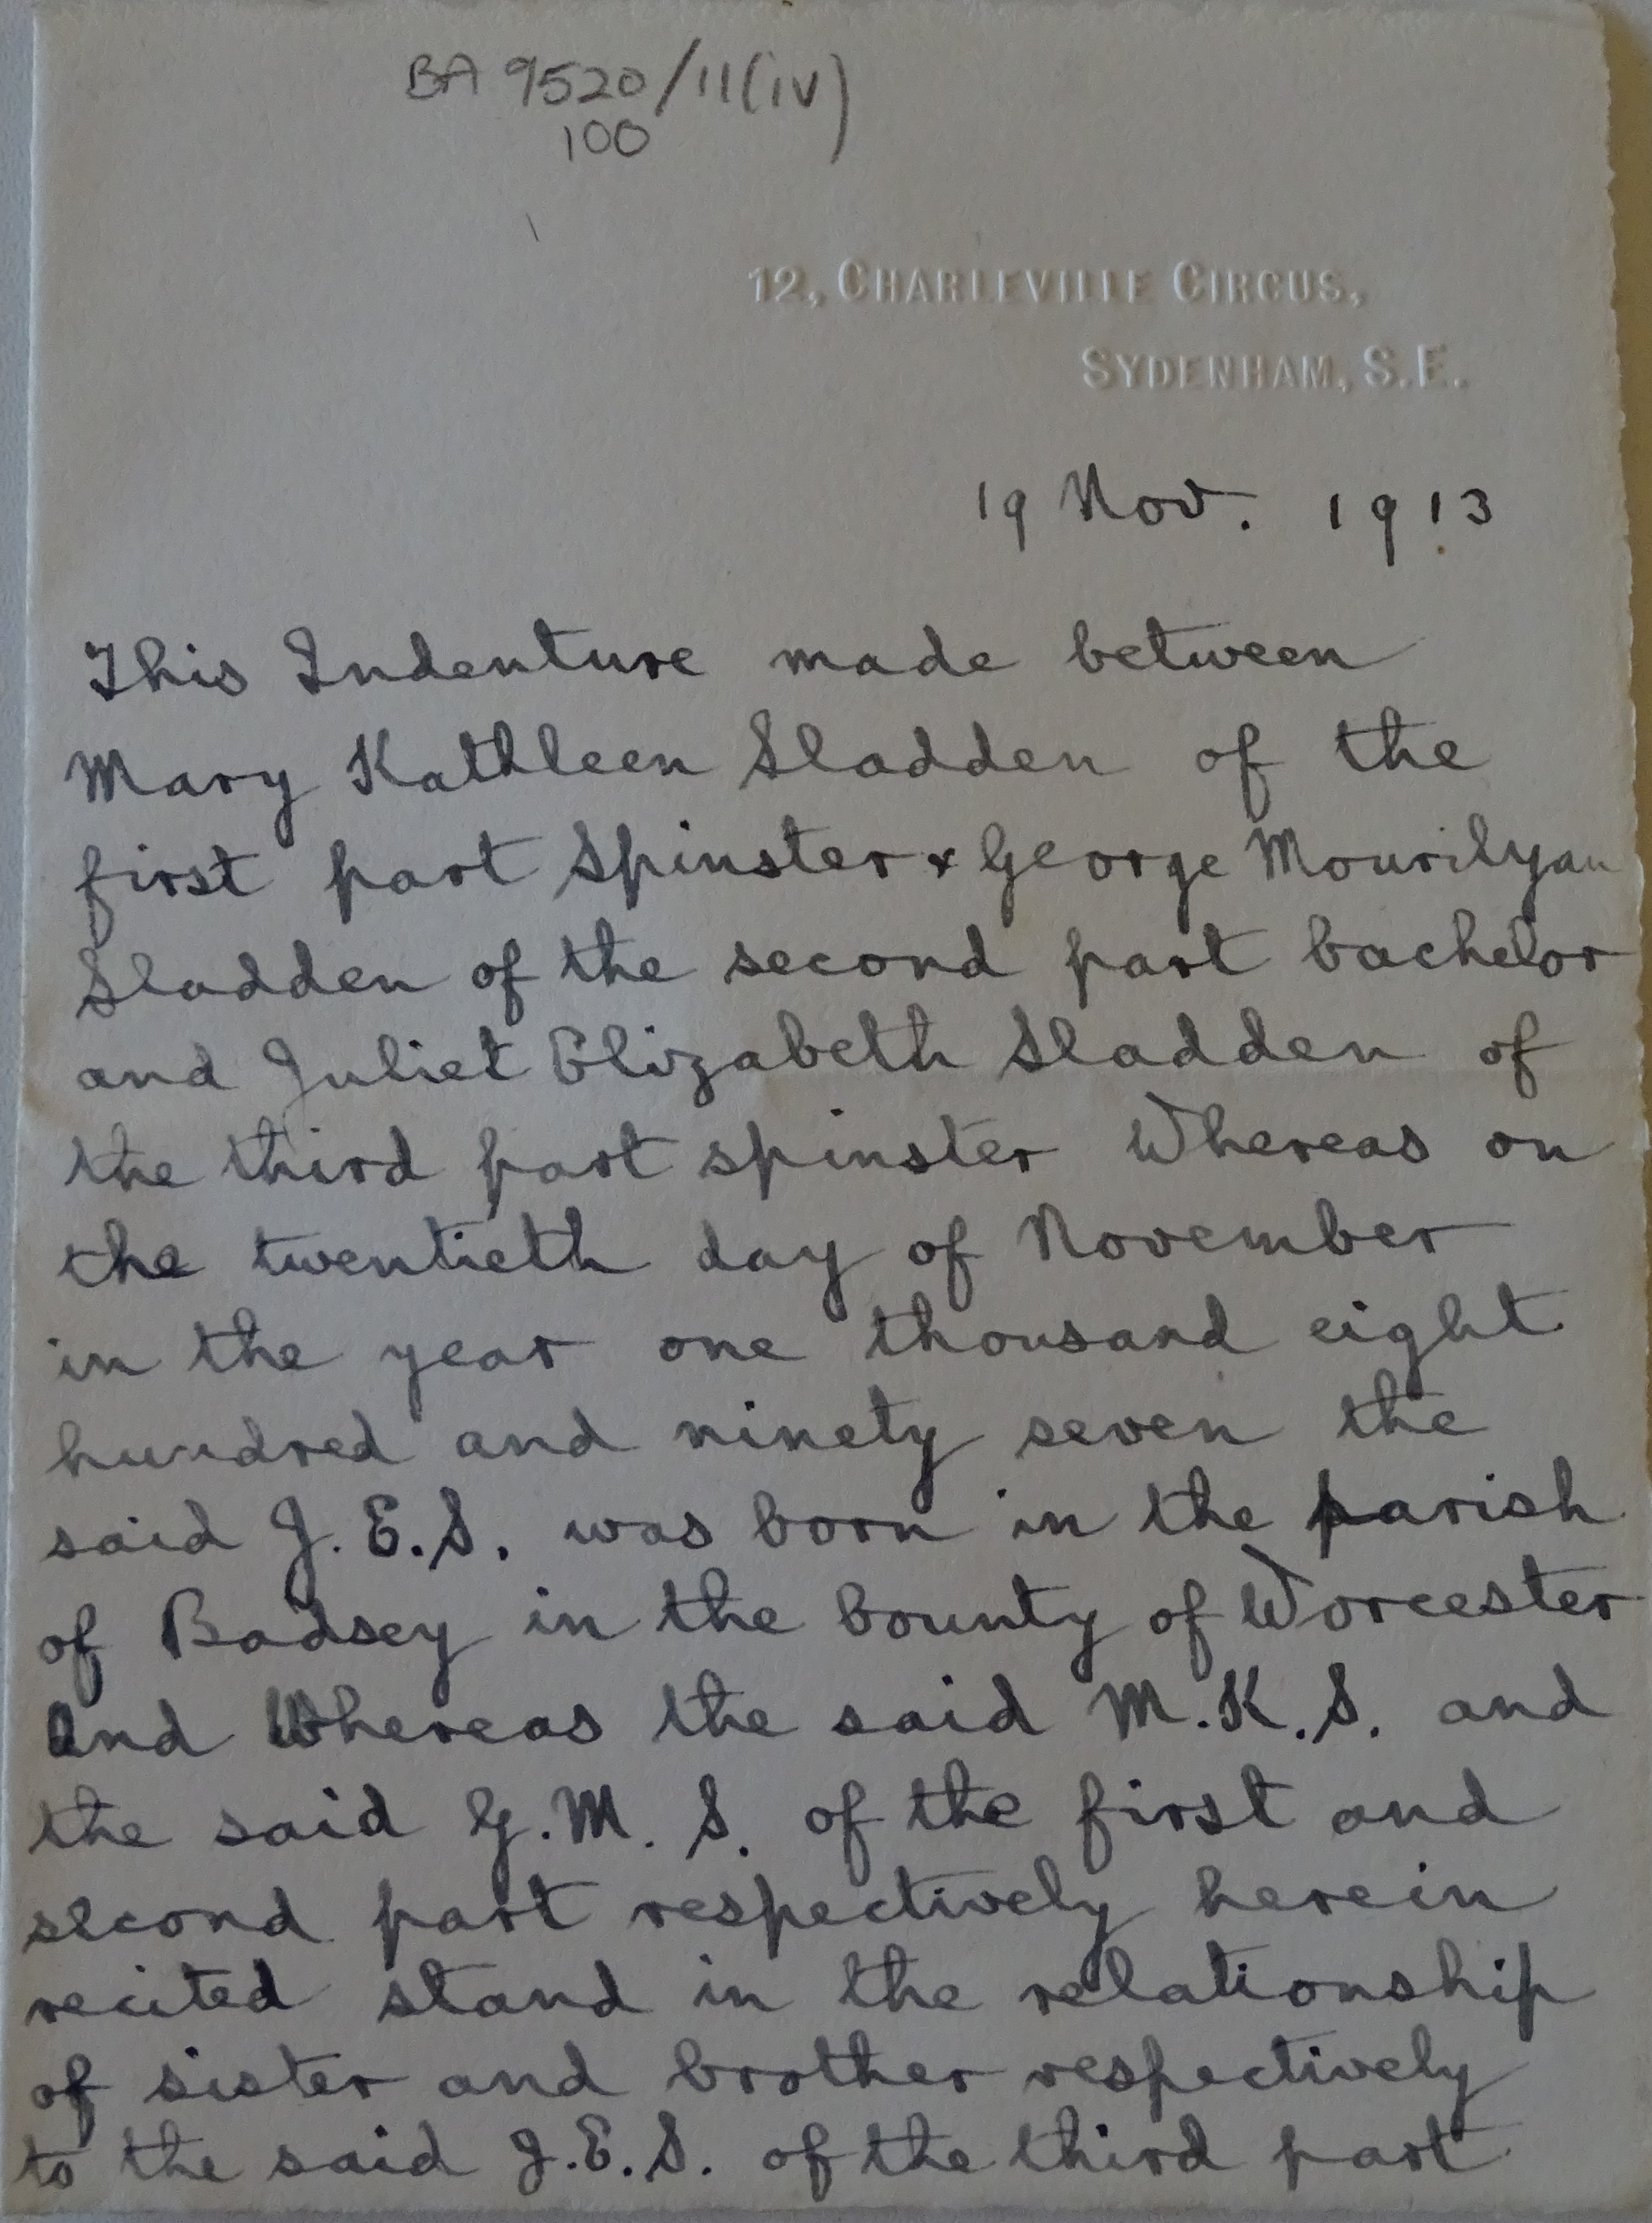 BA 9520/11(iv)
100
12, CHARLEVILLE CIRCUS,
SYDENHAM, S.E.
19 Nov. 1913
This Indenture made between
Mary Kathleen Sladden of the
first part Spinster & George Mourilyan
Sladden of the second part bachelor
and Juliet Elizabeth Sladden of
the third part spinster Whereas on
the twentieth day of November
in the year one thousand eight
hundred and ninety seven the
said J.E.S. was born in the parish
of Badsey in the County of Worcester
And Whereas the said M.K.S. and
the said G.M.S. of the first and
second part respectively herein
recited stand in the relationship
of sister and brother respectively
to the said J.E.S. of the third part